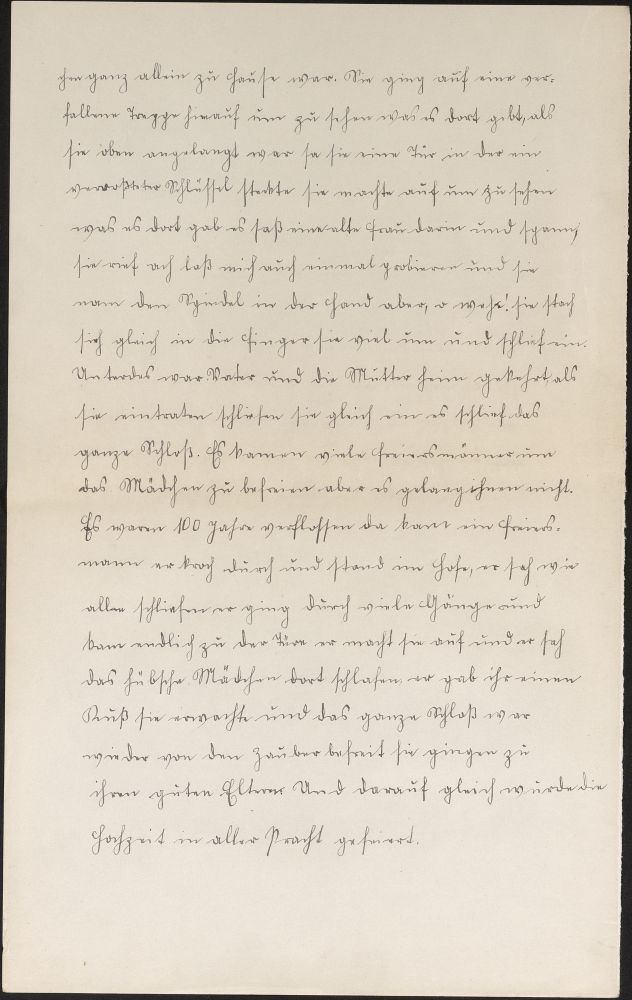 chen ganz allein zu Hause war. Sie ging auf eine ver-
fallene Treppe hinauf um zu sehen was es dort gibt, als
sie oben angelangt war sa sie eine Tür in der ein
verroßteter Schlüssel steckte sie machte auf um zu sehen
was es dort gab es saß eine alte Frau darin und spann,
sie rief ach laß mich auch einmal probieren und sie
nam den Spindel in der Hand aber, o weh! sie stach
sich gleich in die Finger sie viel um und schlief ein.
Unterdes war Vater und die Mutter heim gekehrt, als
sie eintraten schliefen sie gleich ein es schlief das
ganze Schloß. Es kamen viele Freiersmänner um
das Mädchen zu befreien aber es gelang ihnen nicht.
Es waren 100 Jahre verflossen da kam ein Freiers-
mann er kroch durch und stand im Hofe, er sah wie
allen schliefen er ging durch viele Gänge und
kam endlich zu der Türe er macht sie auf und er sah
das hübsche Mädchen dort schlafen er gab ihr einen
Kuß sie erwachte und das ganze Schloß war
wieder von den Zauber befreit sie gingen zu
ihren guten Eltern. Und darauf gleich wurde die
Hochzeit in aller Pracht gefeiert.